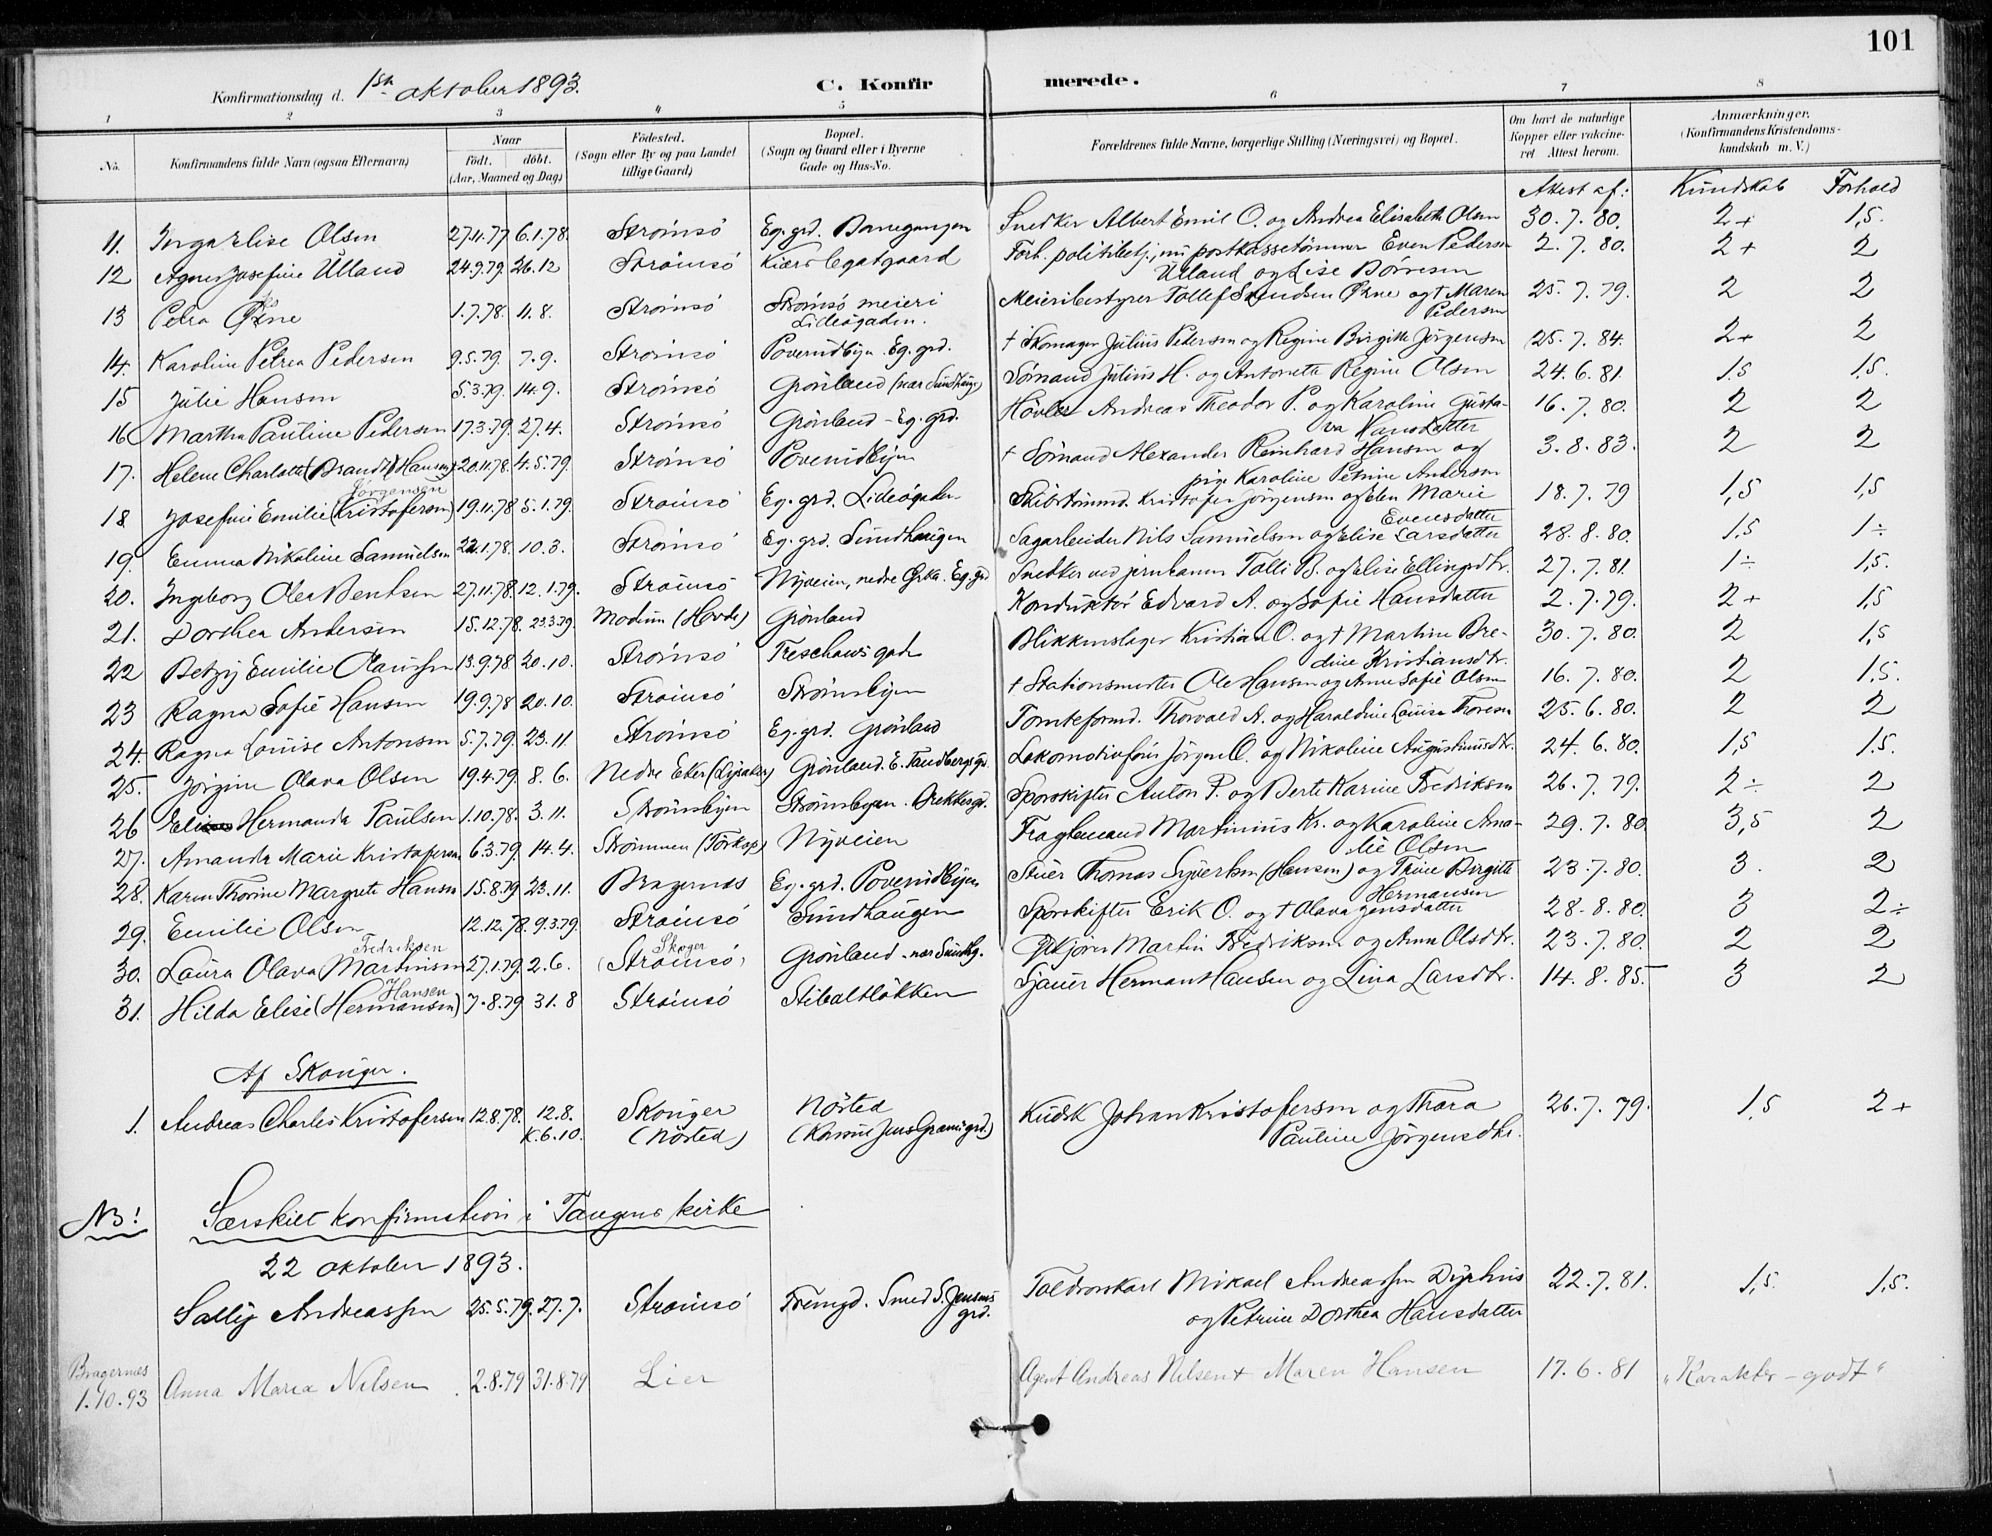 101
Konfirmationsdag d. 1ste oktober 1893. C. Konfir merede.
1 2 3 4 5 6 7 8
No. Konfirmandens fulde Navn (ogsaa Efternavn) Naar født. døbt. (Aar, Maaned og Dag) Fødested. (Sogn eller By og paa Landet tillige Gaard) Bopæl. (Sogn og Gaard eller i Byerne Gade og Hus-No. Forældrenes fulde Navne, borgerlige Stilling (Næringsvei) og Bopæl. Om havt de naturlige Kopper eller vaccineret. Attest herom. Anmærkninger. (Konfirmandens Kristendomskundskab m. V.)
Attest af: Kundskab Forhold
11. Inga Elise Olsen 27.11.77 6.1.78. Strømsø Eg. grd. Banegangen Snedker Albert Emil O. og Andrea Elisabeth Olsen 30.7.80. 2+ 1,5.
12 Agnes Josefine Ulland 24.9.79. 26.12 Strømsø Kiærs legatgaard Forh. politibetj., nu postkassetømmer Even Pedersen 2.7.80. 2+ 2
Ulland og Lise Børresen
13 Petra Øxne 1.7.78. 11.8. Strømsø Strømsø meieri Meieribestyrer Tollef Øxne og † Maren 25.7.79. 2 2
Lideøgaden. Pedersen
14. Karoline Petrea Pedersen 9.5.79. 7.9. Strømsø Poverudbyen Eg. grd. † Skomager Julius Pedersen og Regine Birgitte Jørgensen 25.7.84. 2+ 2
15 Julie Hansen 5.3.79. 14.9. Strømsø Grønland (nær Sundhaug) Sømand Julius H. og Antonette Regine Olsen 24.6.81. 1,5 1,5.
16 Martha Pauline Pedersen 17.3.79. 27.4. Strømsø Grønland - Eg. grd. Høvler Andreas Theodor P. og Karoline Gusta- 16.7.80. 2 2
va Hansdatter
17. Helene Charlotte (Brandt) Hansen 20.11.78. 4.5.79. Strømsø Poverudbyen † Sømand Alexander Reinhard Hansen og 3.8.83. 2 2
Jørgensen pige Karoline Petrine Andersen
18 Josefine Emilie (Kristofersen) 19.11.78 5.1.79. Strømsø Eg. grd. Lideøgaden Skibstømmd. Kristofer Jørgensen og Elen Marie 18.7.79 1,5 1,5
Evensdatter
19. Emma Nikoline Samuelsen 22.1.78. 10.3. Strømsø Eg. grd. Sundhaugen Sagarbeider Nils Samuelsen og Elise Larsdatter 28.8.80. 1,5 1÷
20. Ingeborg Olea Bentsen 27.11.78. 12.1.79. Strømsø Nyveien, nedre Eg. grd Snedker ved jernbanen Tolli B. og Elise Ellingsdtr. 27.7.81. 1÷ 1,5.
21. Dorthea Andersen 15.12.78. 23.3.79. Modum (Hovde) Grønland Konduktør Edvard A. og Sofie Hansdatter 2.7.79. 2+ 1,5
22 Betzy Emilie Olaussen 13.9.78 20.10. Strømsø Treschows gade Blikkenslager Kristian O. og † Martine Bre- 30.7.80. 2 1,5
dine Kristiansdtr.
23 Ragna Sofie Hansen 19.9.78 20.10. Strømsø Strømsbyen † Stationsmester Ole Hansen og Anne Sofie Olsen 16.7.80. 2 1,5.
24. Ragna Louise Antonsen 5.7.79. 23.11. Strømsø Eg. grd. Grønland Tomteformd. Thorvald A. og Haraldine Louise Thoresen 25.6.80. 2 2
25. Jørgine Olava Olsen 19.4.79. 8.6. Nedre Eker (Lysaker) Grønland. E. Tandbergs gd. Lokomotivfører Jørgen O. og Nikoline Augustinusdtr. 24.6.80. 1,5 1,5.
26 Hermanda Paulsen 1.10.78. 3.11. Strømsbyen Strømsbyen. Sporskifter Anton P. og Berte Karine Fredriksen 26.7.79. 2÷ 2
27. Amanda Marie Kristofersen 6.3.79. 14.4. Strømmen (Tørkop) Nyveien Fragtemand Martinius Kr. og Karoline Ama- 29.7.80. 3,5 2
lie Olsen
28. Karen Thorine Margrete Hansen 15.8.79 23.11. Bragernæs Eg. grd. Poverudbyen Stuer Thomas Syvertsen (Hansen) og Trine Birgitte 23.7.80. 3. 2
Hermansen
29. Emilie Olsen 12.12.78. 9.3.79. Strømsø Sundhaugen Sporskifter Erik O. og † Olava Jensdatter 28.8.80. 3 2÷
Fredriksen Skoger
30. Laura Olava Martinsen 27.1.79. 2.6. (Strømsø) Grønland - nær Sundhg. Martin Fredriksen og Anne Olsdtr. 23.7.80. 2 2
Hansen
31. Hilda Elise (Hermansen) 7.8.79 31.8 Strømsø Stibaltløkken Sjauer Herman Hansen og Lina Larsdtr. 14.8.85. 3 2
Af Skouger.
1. Andreas Charles Kristofersen 12.8.78. 12.8. Skouger Nøsted Kudsk Johan Kristofersen og Thora 26.7.79. 1,5 2+
K. 6.10. (Nøsted) Pauline Jørgensdtr.
NB! Særskilt konfirmation i Tangens kirke
22 oktober 1893.
Sally Andreassen 25.5.79. 27.7. Strømsø Tremgd. Smed S. Jensens Toldrorskarl Mikael Andreassen Dyrhus 22.7.81. 1,5. 1,5.
grd. og Petrine Dorthea Hansdatter
Bragernes
1.10.93 Anna Maria Nilsen 2.8.79 31.8.79 Lier Agent Andreas Nilsen + Maren Hansen 17.6.81 "Karakter - godt"